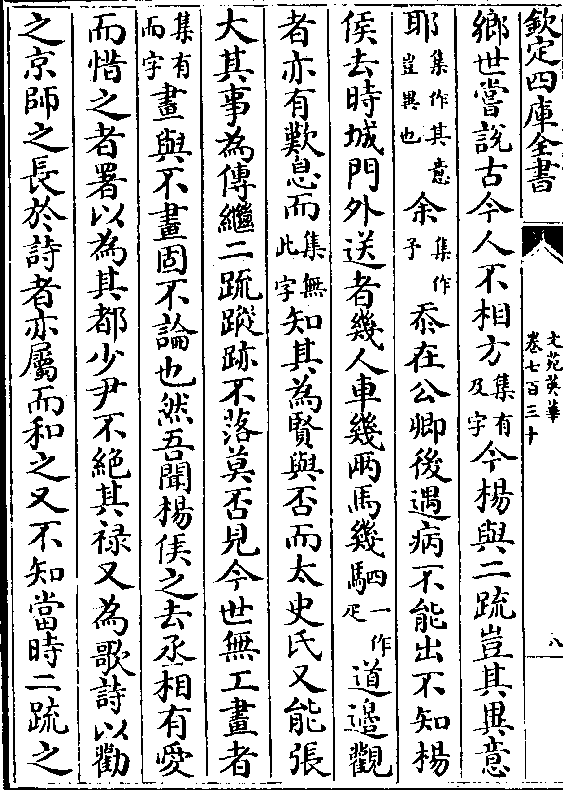 欽定四庫全書
文苑英華
卷七百三十
八
鄉世嘗說古今人不相方集有及字今楊與二疏豈其異意
耶集作其意豈異也余集作予忝在公卿後遇病不能出不知楊
侯去時城門外送者幾人車幾兩馬幾駟一作四疋道邊觀
者亦有歎息而集無此字知其為賢與否而太史氏又能張
大其事為傳繼二疏蹤跡不落莫否見今世無工畫者
集有而字畫與不畫固不論也然吾聞楊侯之去丞相有愛
而惜之者署以為其都少尹不絕其祿又為歌詩以勸
之京師之長於詩者亦屬而和之又不知當時二疏之